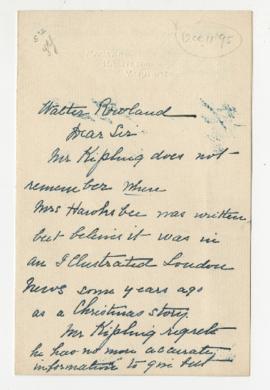 Dec 11 95
Walter Rowland
Dear Sir
Mr Kipling does not
remember when
Mrs Hauksbee was written
but believes it was in
an Illustrated London
News some years ago
as a Christmas story.
Mr Kipling regrets
he has no more accurate
information to give but